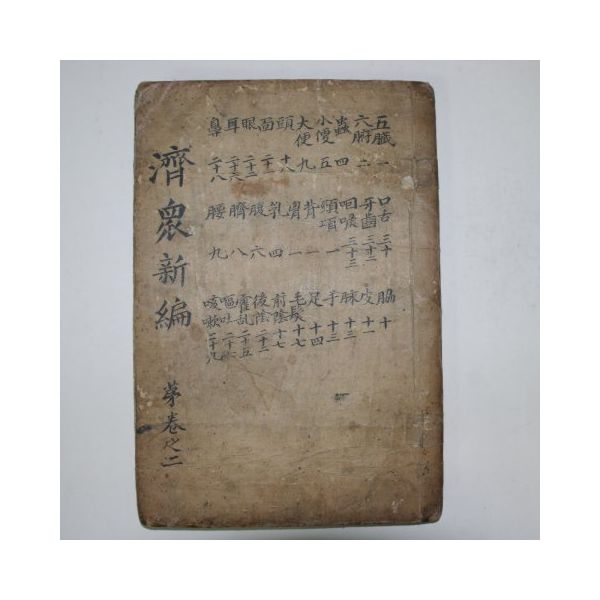 五臟 一
六腑 二
蟲 四
小便 五
大便 九
頭 十八
面 二十一
眼 二十二
耳 二十六
鼻 二十八
口舌 三十
牙齒 三十二
咽喉 三十三
頸項 一
背 一
膺 一
乳 四
腹 六
臍 八
腰 九
脇 十
皮 十一
脉 十二
手 十三
足 十四
毛髮 十七
前陰 十七
後陰 二十一
霍乱 二十五
嘔吐
咳嗽 二十九
濟眾新編
茅卷之二